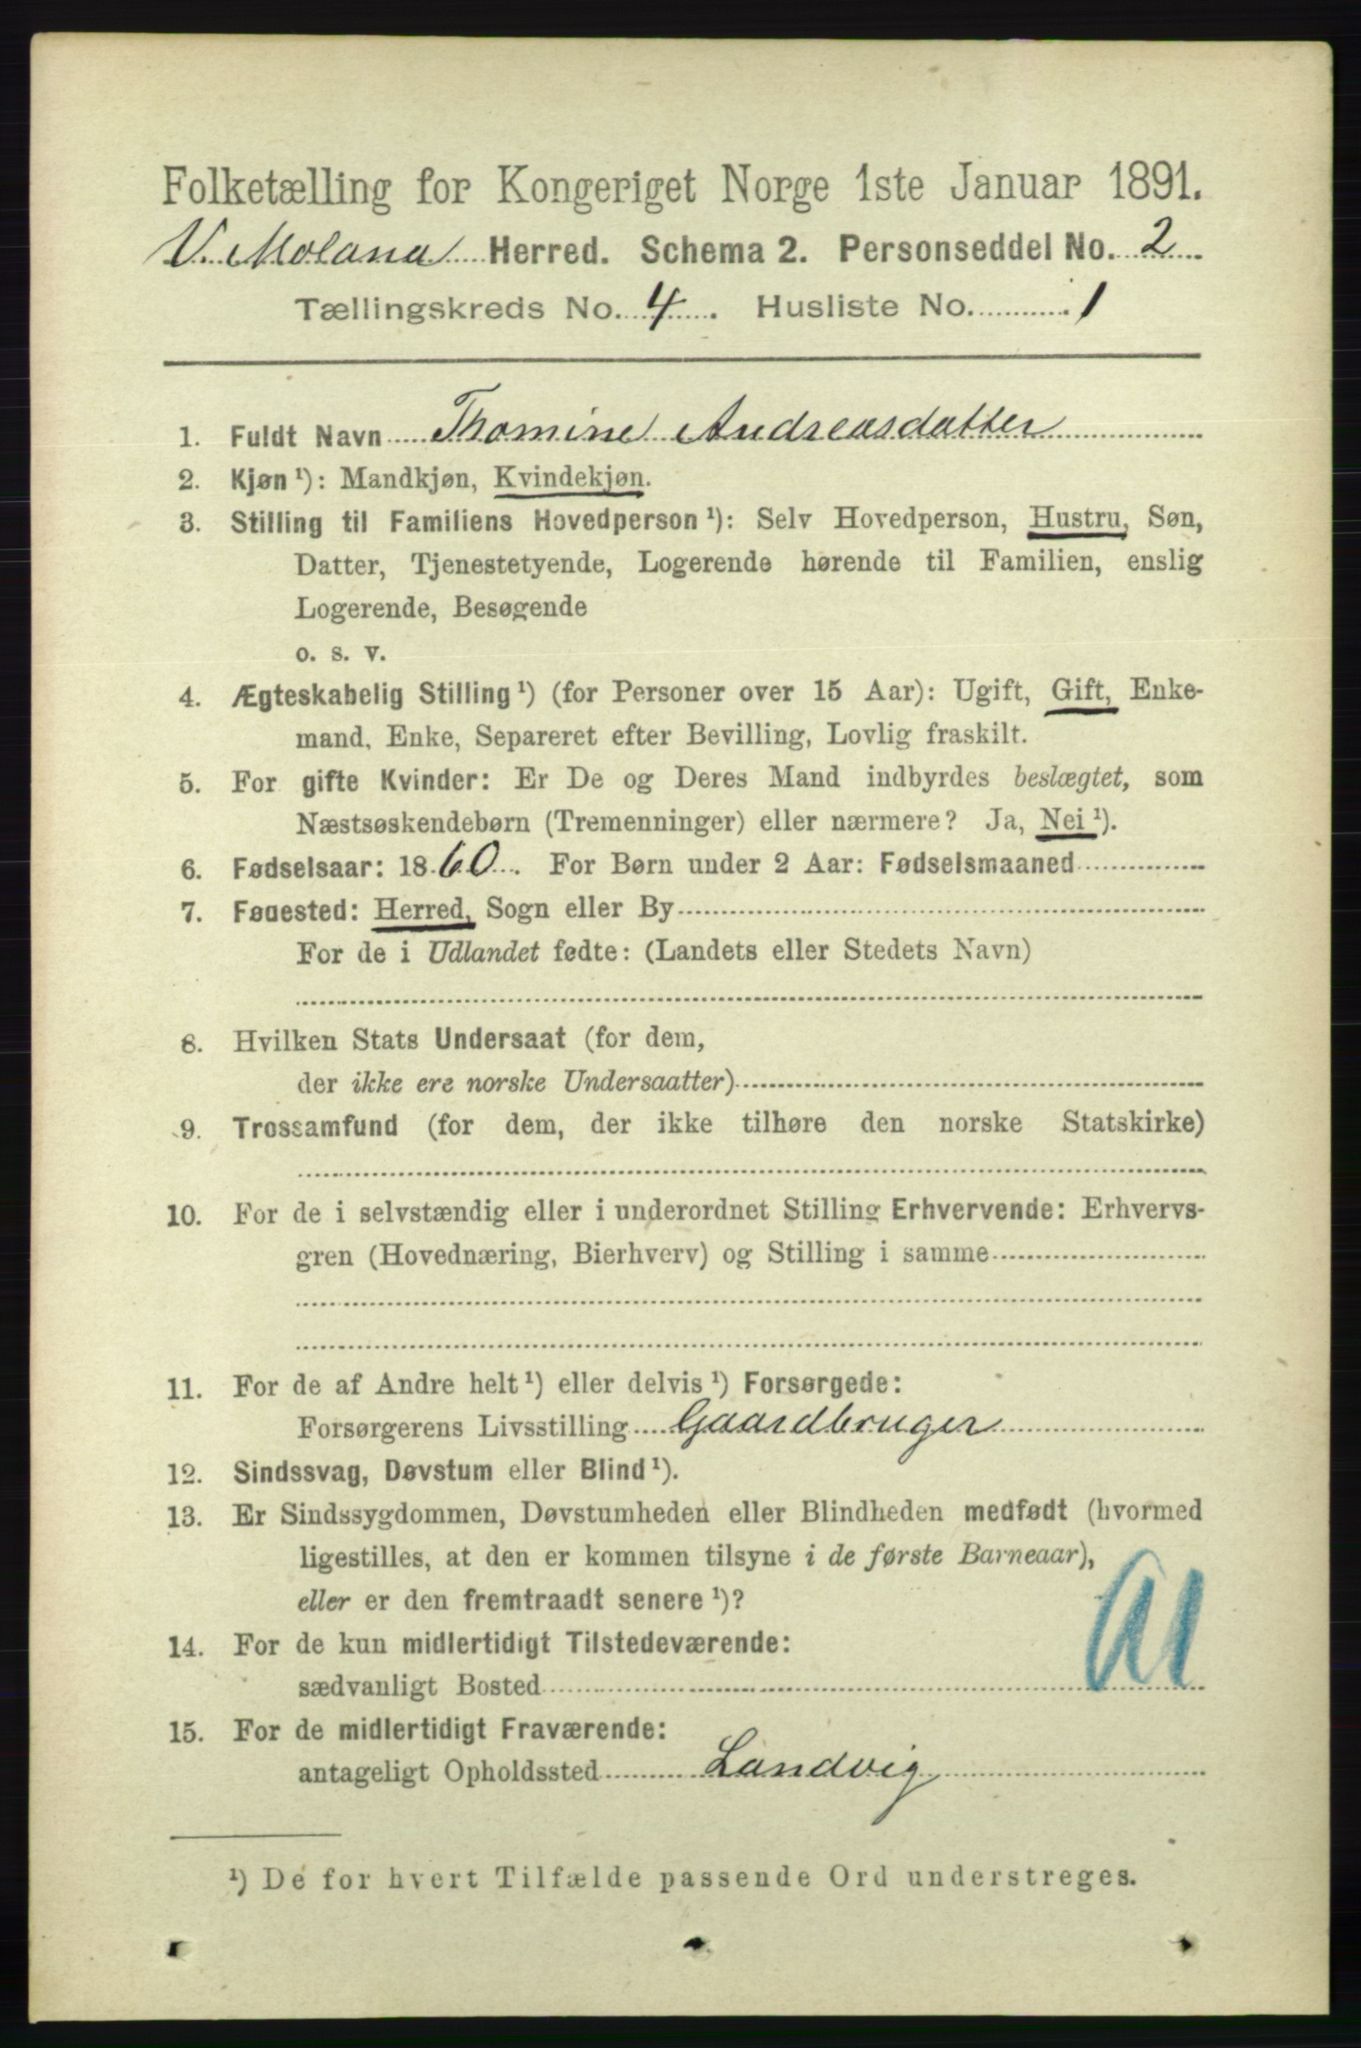 Folketælling for Kongeriget Norge 1ste Januar 1891.
V. Moland Herred. Schema 2. Personseddel No. 2
Tællingskreds No. 4. Husliste No. 1
1. Fuldt Navn Thomine Andreasdatter
2. Kjøn ¹): Mandkjøn, Kvindekjøn.
3. Stilling til Familiens Hovedperson ¹): Selv Hovedperson, Hustru, Søn,
Datter, Tjenestetyende, Logerende hørende til Familien, enslig
Logerende, Besøgende
o. s. v.
4. Ægteskabelig Stilling ¹) (for Personer over 15 Aar): Ugift, Gift, Enke-
mand, Enke, Separeret efter Bevilling, Lovlig fraskilt.
5. For gifte Kvinder: Er De og Deres Mand indbyrdes beslægtet, som
Næstsøskendebørn (Tremenninger) eller nærmere? Ja, Nei ¹).
6. Fødselsaar: 1860. For Børn under 2 Aar: Fødselsmaaned
7. Fødested: Herred, Sogn eller By
For de i Udlandet fødte: (Landets eller Stedets Navn)
8. Hvilken Stats Undersaat (for dem,
der ikke ere norske Undersaatter)
9. Trossamfund (for dem, der ikke tilhøre den norske Statskirke)
10. For de i selvstændig eller i underordnet Stilling Erhvervende: Erhvervs-
gren (Hovednæring, Bierhverv) og Stilling i samme
11. For de af Andre helt ¹) eller delvis ¹) Forsørgede:
Forsørgerens Livsstilling Gaardbruger
12. Sindssvag, Døvstum eller Blind ¹).
13. Er Sindssygdommen, Døvstumheden eller Blindheden medfødt (hvormed
ligestilles, at den er kommen tilsyne i de første Barneaar),
eller er den fremtraadt senere ¹)?
14. For de kun midlertidigt Tilstedeværende:
sædvanligt Bosted
15. For de midlertidigt Fraværende:
antageligt Opholdssted Landvig
¹) De for hvert Tilfælde passende Ord understreges.